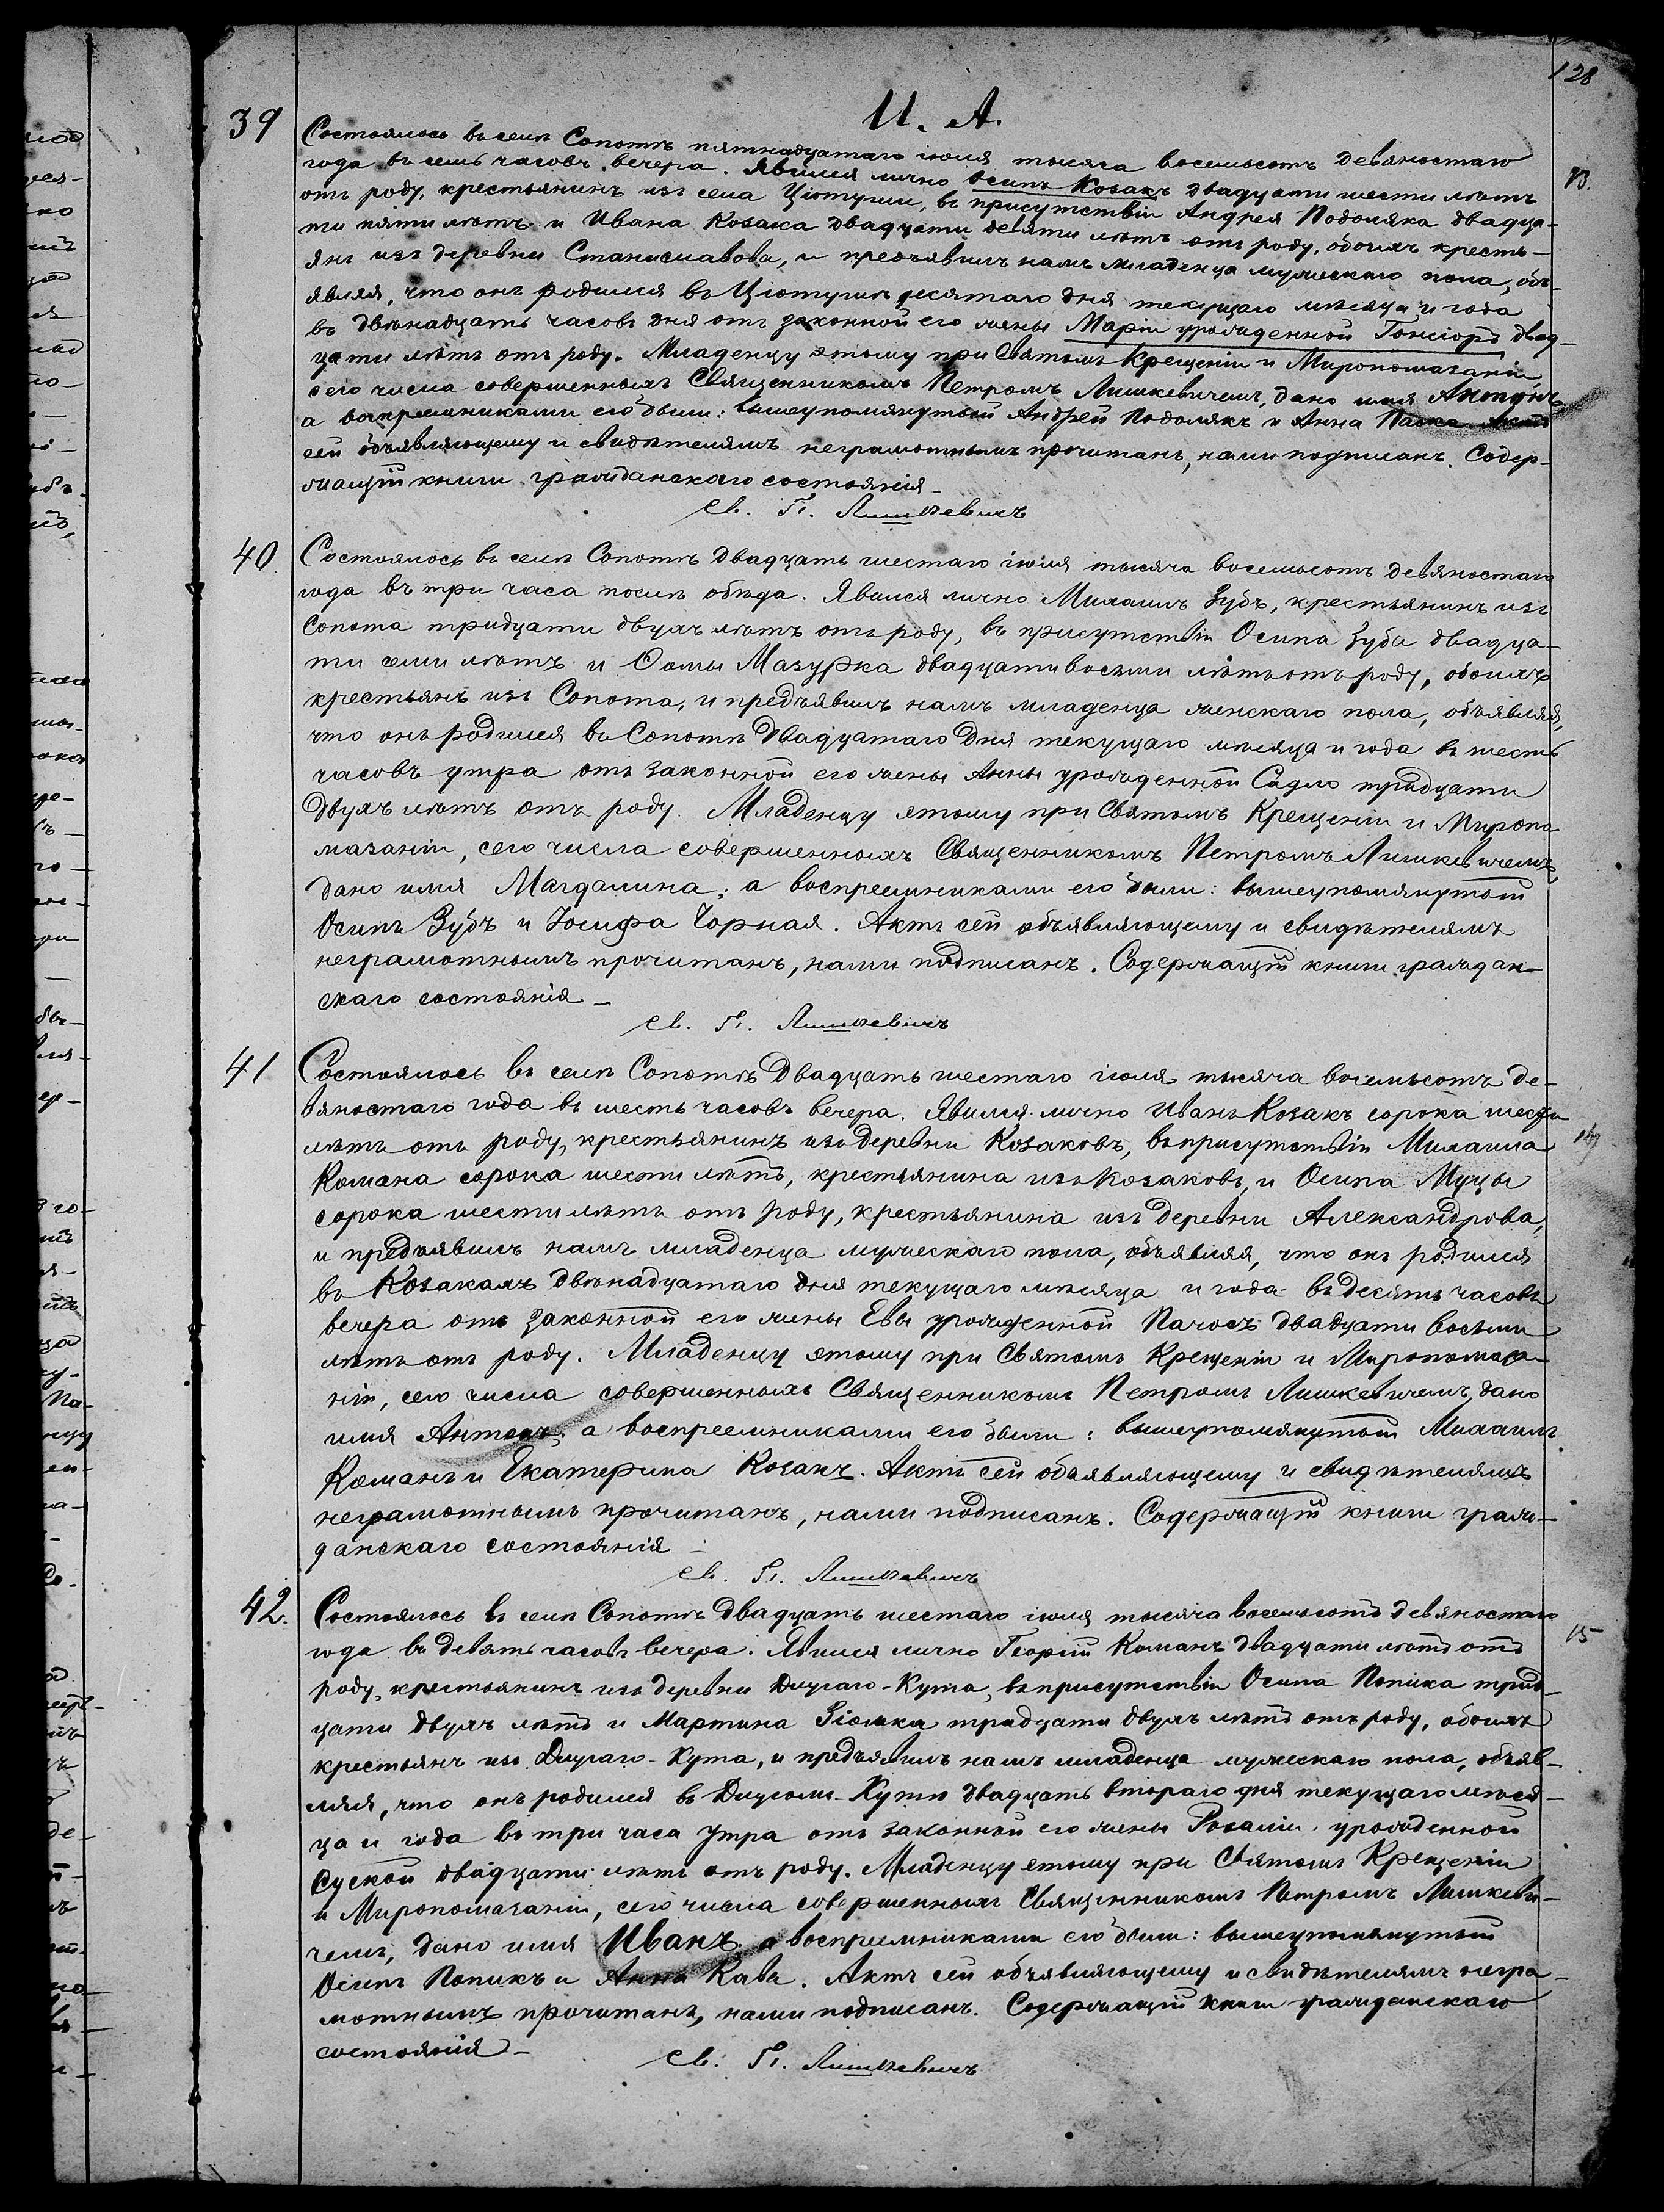 128
И. А.
39
Состоялось въ селѣ Сопотѣ пятнадцатаго іюля тысяча восемьсотъ девяностаго
года въ семь часовъ вечера. Явился лично Осипъ Козакъ двадцати шести лѣтъ
13.
отъ роду, крестьянинъ изъ села Цiотуши, въ присутствіи Андрея Подоляка двадца-
ти пяти лѣтъ и Ивана Козака двадцати девяти лѣтъ отъ роду, обоихъ кресть-
янъ изъ деревни Станиславова, и предъявилъ намъ младенца мужескаго пола, объ-
являя, что онъ родился въ Цiотушѣ десятаго дня текущаго мѣсяца и года
въ двѣнадцать часовъ дня отъ законной его жены Маріи урожденной Гонсіоръ двад-
цати лѣтъ отъ роду. Младенцу этому при Святомъ Крещеніи и Миропомазаніи,
сего числа совершенныхъ Священникомъ Петромъ Лишкевичемъ, дано имя Антонъ
а воспреемниками его были: вышеупомянутый Андрей Подолякъ и Анна Паска. Актъ
сей объявляющему и свидѣтелямъ неграмотнымъ прочитанъ, нами подписанъ. Содер-
жащій книги гражданскаго состоянія_
Св. П. Лишкевичъ
40
Состоялось въ селѣ Сопотѣ двадцать шестаго іюля тысяча восемьсотъ девяностаго
года въ три часа послѣ обѣда. Явился лично Михаилъ Зубъ, крестьянинъ изъ
Сопота тридцати двухъ лѣтъ отъ роду, въ присутствіи Осипа Зуба двадца-
ти семи лѣтъ и Ѳомы Мазурка двадцати восьми лѣтъ отъ роду, обоихъ
крестьянъ изъ Сопота, и предъявилъ намъ младенца женскаго пола, объявляя,
что онъ родился въ Сопотѣ двадцатаго дня текущаго мѣсяца и года въ шесть
часовъ утра отъ законной его жены Анны урожденной Садло тридцати
двухъ лѣтъ отъ роду. Младенцу этому при Святомъ Крещеніи и Миропо
мазаніи, сего числа совершенныхъ Священникомъ Петромъ Лишкевичемъ,
дано имя Магдалина; а воспреемниками его были: вышеупомянутый
Осипъ Зубъ и Іосифа Чорная. Актъ сей объявляющему и свидѣтелямъ
неграмотнымъ прочитанъ, нами подписанъ. Содержащій книги граждан-
скаго состоянія_
Св. П. Лишкевичъ
41
Состоялось въ селѣ Сопотѣ двадцать шестаго іюля тысяча восемьсотъ де-
вяностаго года въ шесть часовъ вечера. Явился лично Иванъ Козакъ сорока шести
лѣтъ отъ роду, крестьянинъ изъ деревни Козаковъ, въ присутствіи Михаила
14
Комана сорока шести лѣтъ, крестьянина изъ Козаковъ, и Осипа Муцы
сорока шести лѣтъ отъ роду, крестьянина изъ деревни Александрова,
и предъявилъ намъ младенца мужескаго пола, объявляя, что онъ родился
въ Козакахъ двѣнадцатаго дня текущаго мѣсяца и года въ десять часовъ
вечера отъ законной его жены Евы урожденной Пачосъ двадцати восьми
лѣтъ отъ роду. Младенцу этому при Святомъ Крещеніи и Миропомаза-
ніи, сего числа совершенныхъ Священникомъ Петромъ Лишкевичемъ, дано
имя Антонъ; а воспреемниками его были: вышеупомянутый Михаилъ
Команъ и Екатерина Козакъ. Актъ сей объявляющему и свидѣтелямъ
неграмотнымъ прочитанъ, нами подписанъ. Содержащій книги граж-
данскаго состоянія
Св. П. Лишкевичъ
42.
Состоялось въ селѣ Сопотѣ двадцать шестаго іюля тысяча восемьсотъ девяностаго
15
года въ девять часовъ вечера. Явился лично Георгій Команъ двадцати лѣтъ отъ
роду, крестьянинъ изъ деревни Длугаго-Кута, въ присутствіи Осипа Попика трид-
цати двухъ лѣтъ и Мартина Зіомка тридцати двухъ лѣтъ отъ роду, обоихъ
крестьянъ изъ Длугаго-Кута, и предъявилъ намъ младенца мужескаго пола, объяв-
ляя, что онъ родился въ Длугомъ-Кутѣ двадцать втораго дня текущаго мѣся-
ца и года въ три часа утра отъ законной его жены Розаліи урожденной
Суской двадцати лѣтъ отъ роду. Младенцу этому при Святомъ Крещеніи
и Миропомазаніи, сего числа совершенныхъ Священникомъ Петромъ Лишкеви-
чемъ, дано имя Иванъ, а воспреемниками его были: вышеупомянутый
Осипъ Попикъ и Анна Кава. Актъ сей объявляющему и свидѣтелямъ негра-
мотнымъ прочитанъ, нами подписанъ. Содержащій книги гражданскаго
состоянія_
Св. П. Лишкевичъ